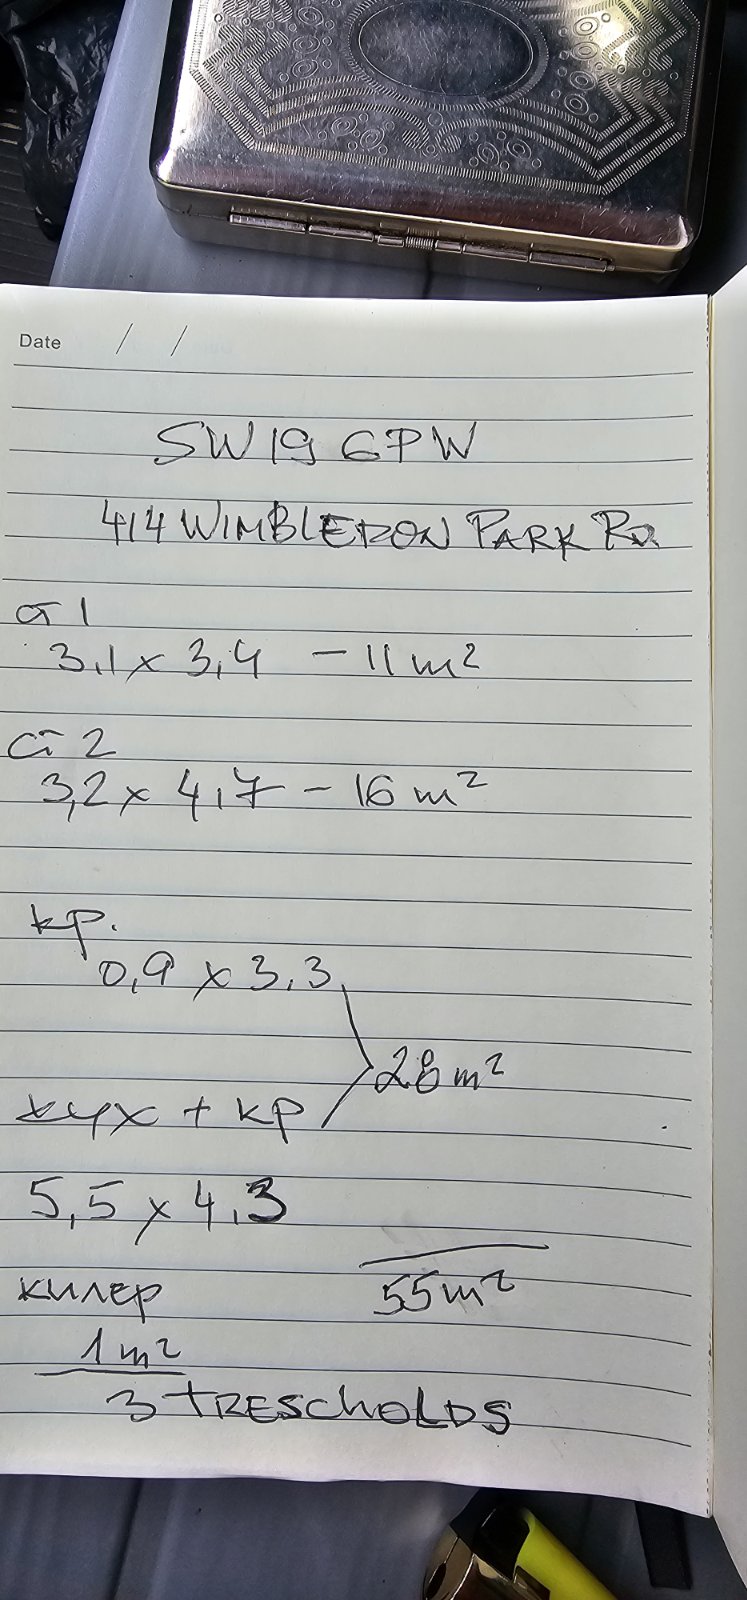 Date / /
SW19 6PW
414 WIMBLEDON PARK RD.
ст 1
3,1 x 3,4 - 11 m²
ст 2
3,2 x 4,7 - 16 m²
кр.
0,9 x 3,3
28 m²
кух + кр
5,5 x 4,3
килер
55 m²
1 m²
3 TRESCHOLDS